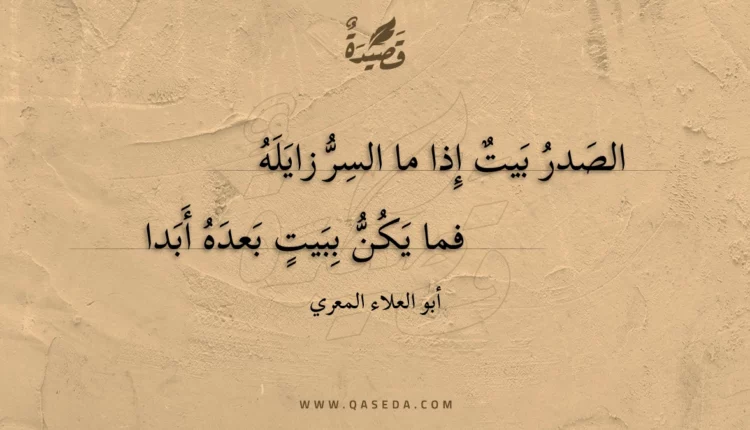 قَصِيدَةٌ
الصَدرُ بَيتٌ إِذا ما السِرُّ زايَلَهُ
فما يَكُنُّ بِبَيتٍ بَعدَهُ أَبَدا
أبو العلاء المعري
WWW.QASEDA.COM